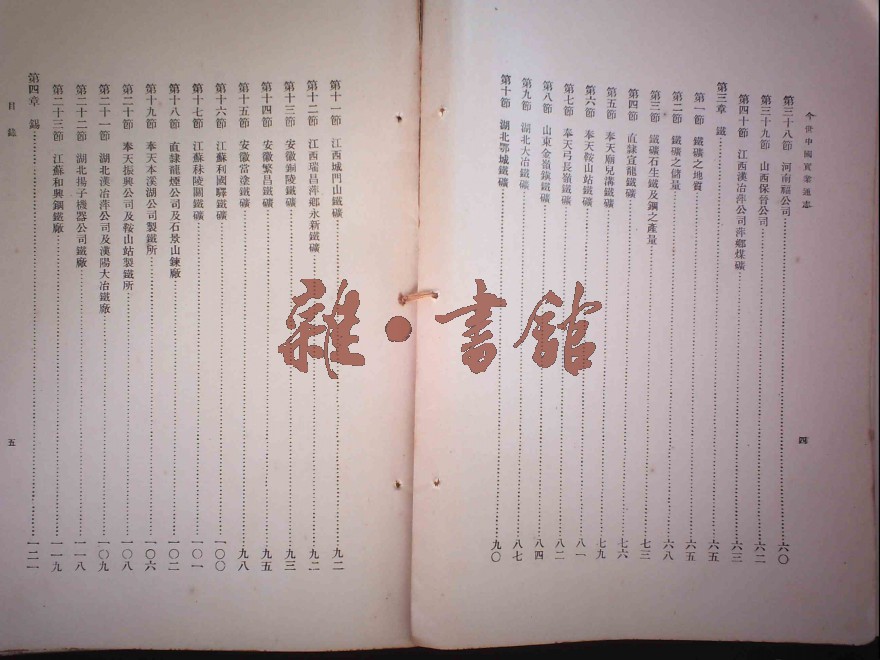 今世中國實業通志
第三十八節 河南福公司 六〇
第三十九節 山西保晉公司 六二
第四十節 江西漢冶萍公司萍鄉煤礦 六三
第三章 鐵 六五
第一節 鐵礦之地質 六五
第二節 鐵礦之儲量 六八
第三節 鐵礦石生鐵及鋼之產量 七三
第四節 直隸宣龍鐵礦 七六
第五節 奉天廟兒溝鐵礦 七九
第六節 奉天鞍山站鐵礦 八一
第七節 奉天弓長嶺鐵礦 八二
第八節 山東金嶺鎮鐵礦 八四
第九節 湖北大冶鐵礦 八七
第十節 湖北鄂城鐵礦 九〇
四
第十一節 江西城門山鐵礦 九二
第十二節 江西瑞昌萍鄉永新鐵礦 九二
第十三節 安徽銅陵鐵礦 九三
第十四節 安徽繁昌鐵礦 九五
第十五節 安徽當塗鐵礦 九八
第十六節 江蘇利國驛鐵礦 一〇〇
第十七節 江蘇秣陵關鐵礦 一〇一
第十八節 直隸龍煙公司及石景山鍊廠 一〇二
第十九節 奉天本溪湖公司製鐵所 一〇六
第二十節 奉天振興公司及鞍山站製鐵所 一〇八
第二十一節 湖北漢冶萍公司及漢陽大冶鐵廠 一〇九
第二十二節 湖北揚子機器公司鐵廠 一一八
第二十三節 江蘇和興鋼鐵廠 一一九
第四章 錫 一二一
目錄
五
雜·書館